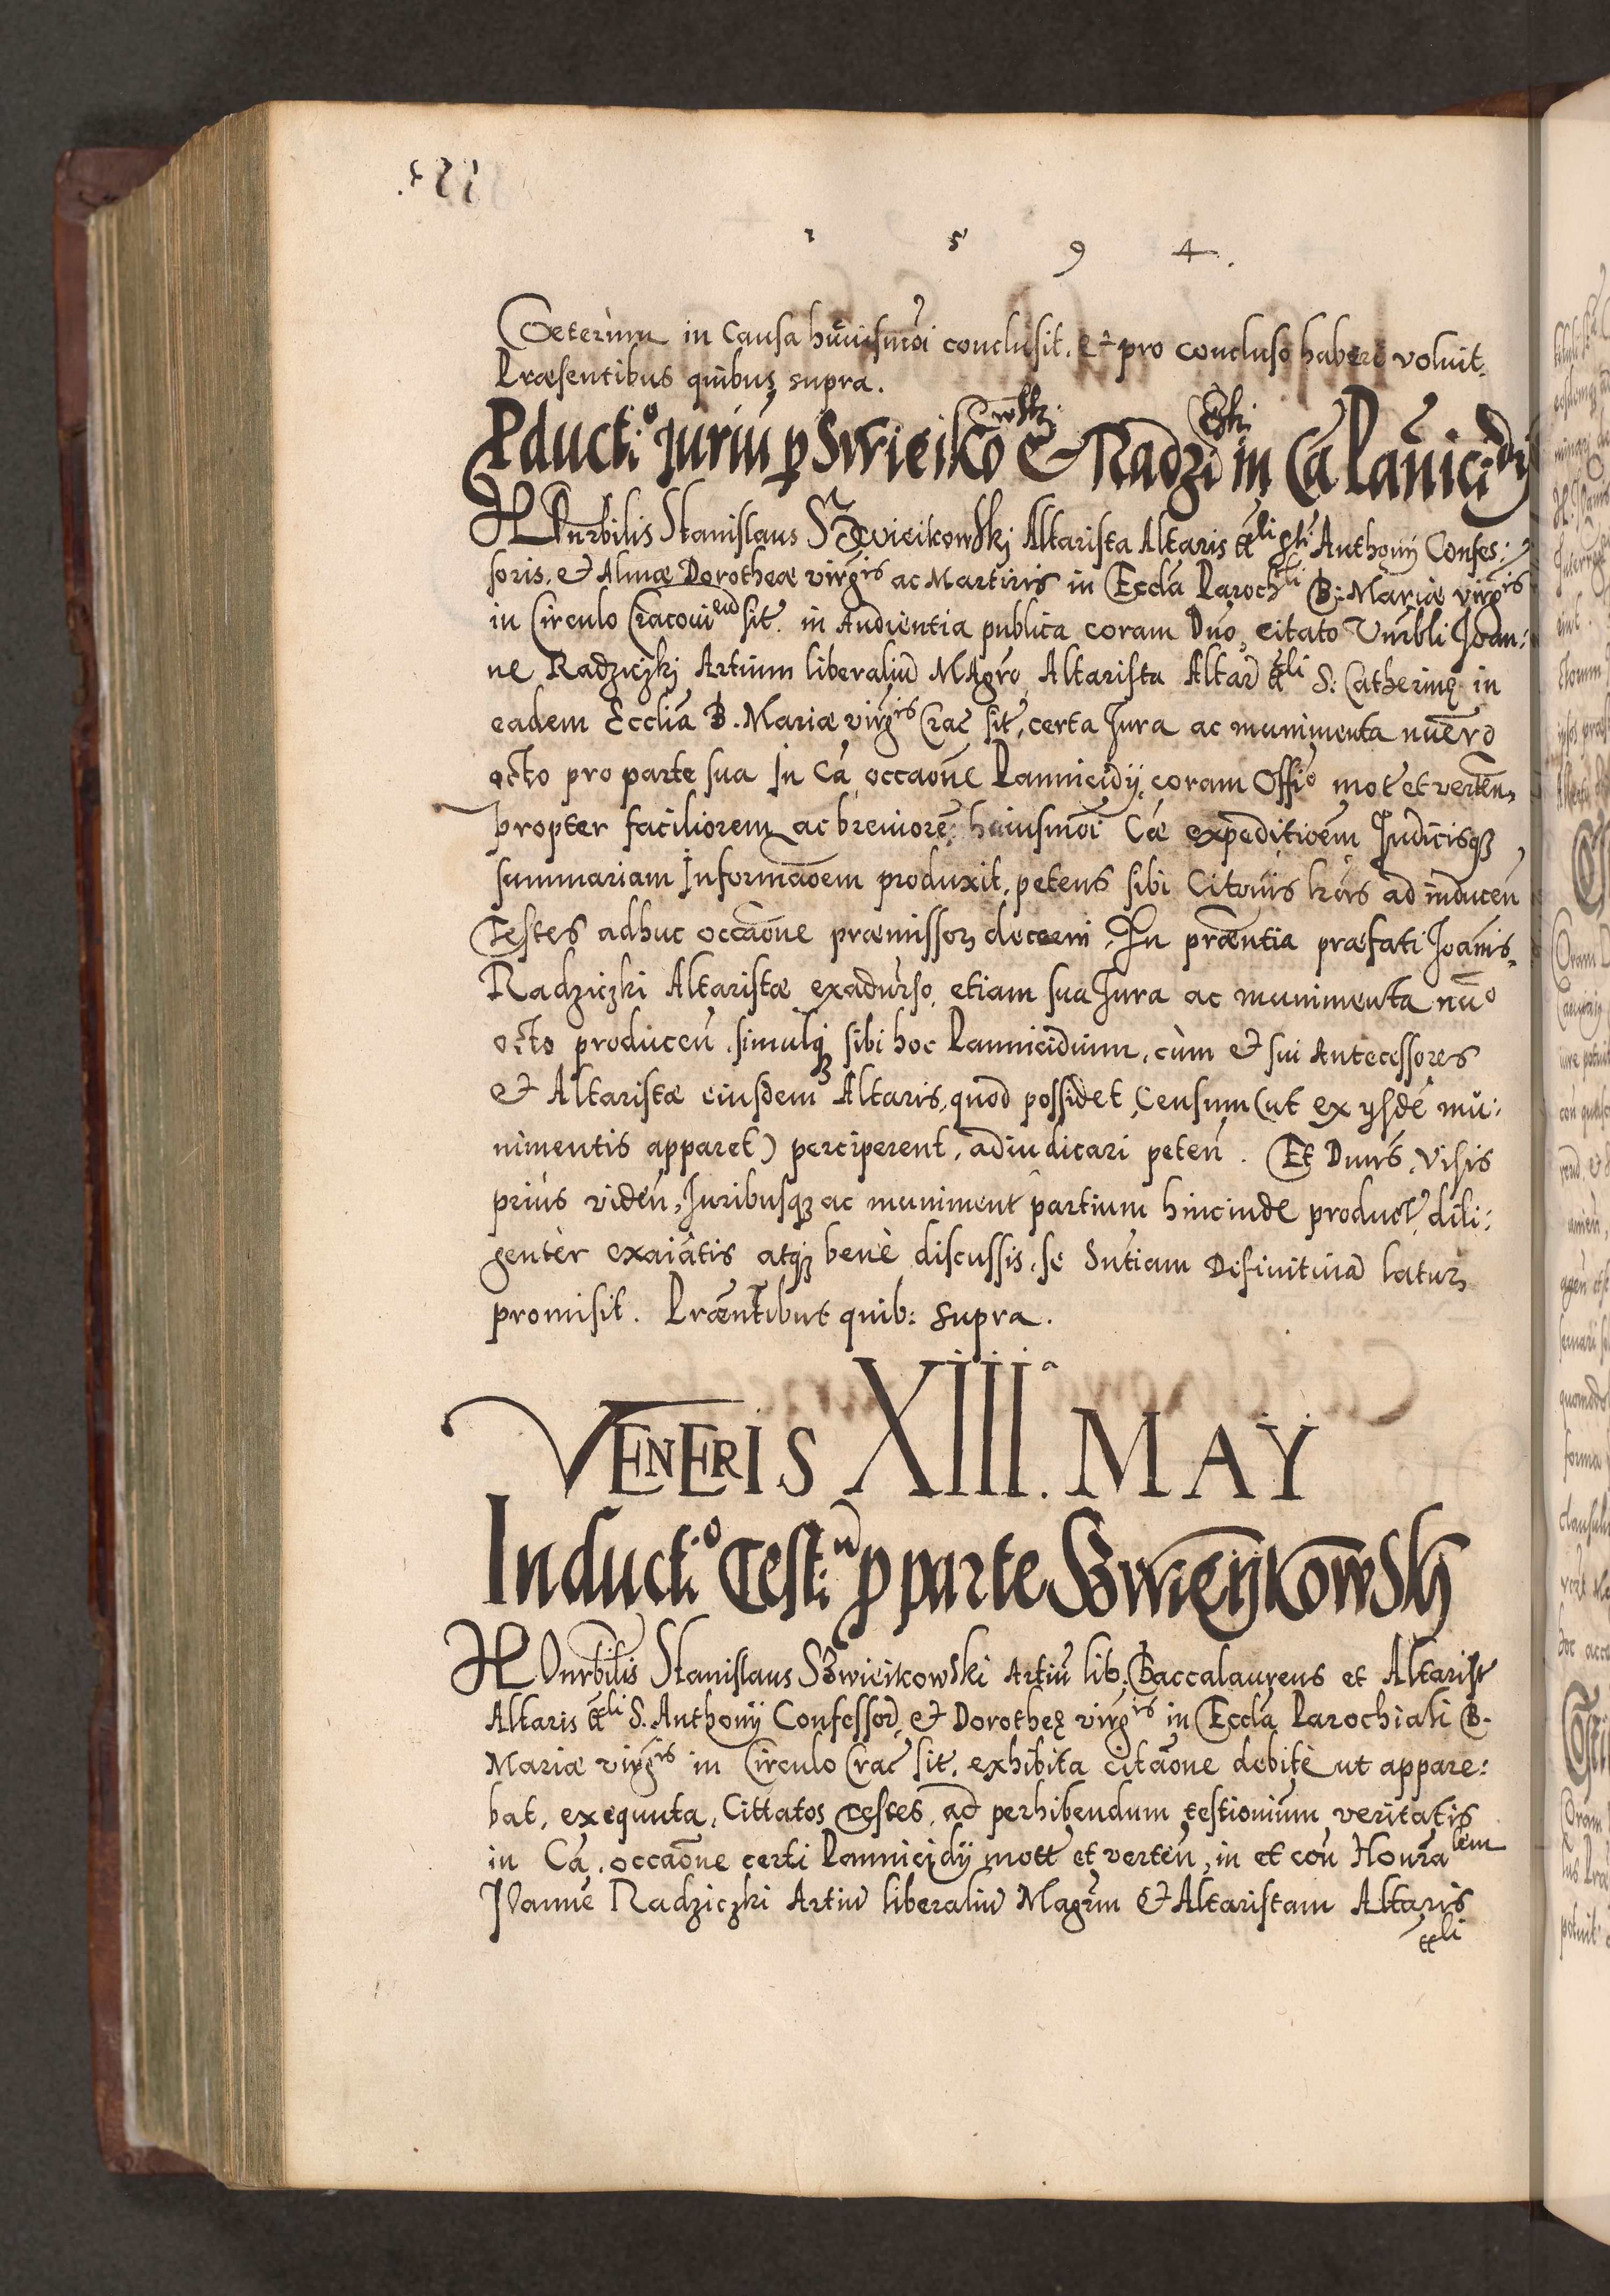 1 5 9 4.
Cæterum in Causa huiusmoi conclusit. et pro concluso habere voluit.
Præsentibus quibus supra.
Pducti:o Juriū p Swieikowskj & Radziczki in Cā Pānicidij
HOnrbilis Stanislaus SZwieikowskj Altarista Altaris tt̄li sti Anthonij Confes:
soris, et Almæ Dorotheæ virgīs ac Martiris in Eccla Parochli B: Mariæ virgīs
in Circulo Cracouien sit. in Audientia publica coram Dno, citato Vnrbli Joan:
ne Radziczkj Artium liberaliū MAgro, Altarista Altar tt̄li S: Catherinę in
eadem Ecclia B. Mariæ virgīs Crac sit, certa Jura ac munimenta nuēro
octo pro parte sua In Cā occaone Pannicidij, coram Offio mot et verten,
propter faciliorem ac breuiorē huiusmoi Cæ expeditioēm Judicisqȝ
summariam Informaoem produxit, petens sibi Citouis lrās ad inducen
Testes adhuc occaone præmissorȝ decerni. In præntia præfati Joanis
Radziczki Altaristæ exaduerso, etiam sua Jura ac munimenta nūo
octo producen̄. simulqȝ sibi hoc Pannicidium, cùm et sui Antecessores
et Altaristæ eiusdem Altaris, quod possidet, Censum (ut ex ijsdē mu:
nimentis apparet) perciperent, adiudicari peten̄. Et Dnus, visis
prius viden̄, Juribusqȝ ac muniment partium hincinde product dili:
gentèr exaiātis atqȝ benè discussis, se Sntiam Definitiuā laturȝ
promisit. Præntibus quib: supra.
VENERIS XIIIa. MAY
Inducti:o Test:u p parte SZwieijkowskj
HOnrbilis Stanislaus SZwieikowski Artiū lib. Baccalaureus et Altarist
Altaris tt̄li S. Anthonij Confessor, et Dorotheę virgīs in Eccla Parochiali B.
Mariæ virgīs in Circulo Crac sit, exhibita citaōne debitè ut appare:
bat, exequuta, Cittatos Testes, ad perhibendum testionium veritatis
in Cā, occaōne certi Pannicidij mott et verten̄, in et con̄ Honrālem
Joanne Radziczki Artiū liberaliū Magrm et Altaristam Altaris
tt̄li